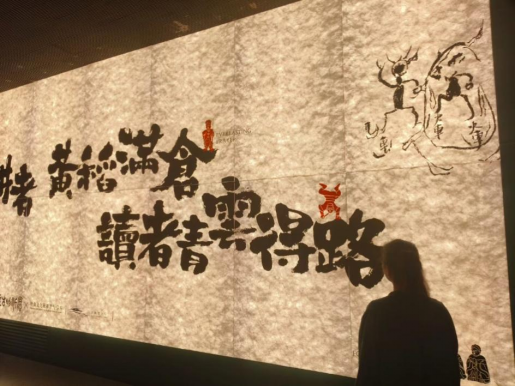 者黃稻滿倉
讀者青雲得路